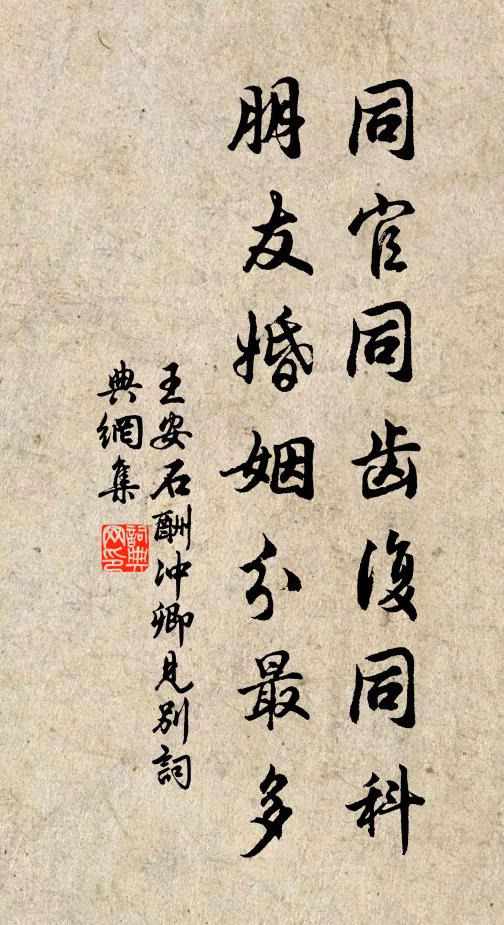 同官同齿復同科
朋友婚姻分最多
王安石酬冲卿見別詞
典網集
詞典
网印